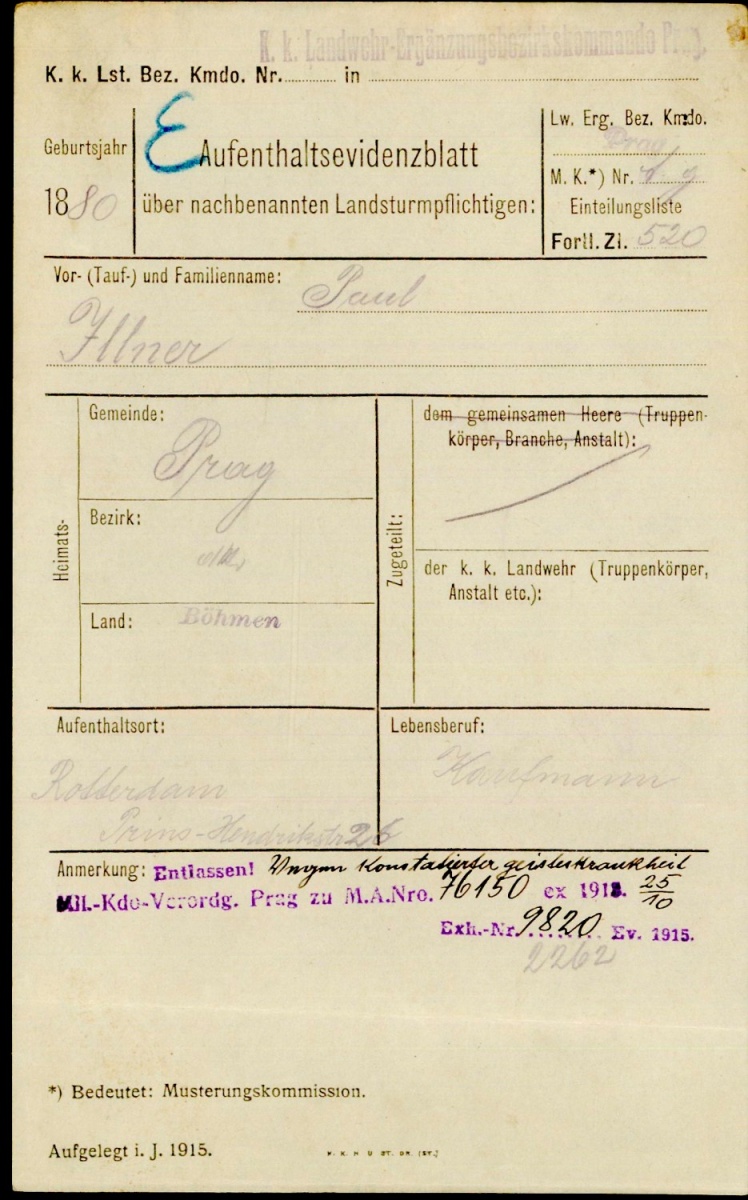 K. k. Landwehr-Ergänzungsbezirkskommando Prag.
K. k. Lst. Bez. Kmdo. Nr. in
Geburtsjahr
1880
E
Aufenthaltsevidenzblatt
über nachbenannten Landsturmpflichtigen:
Lw. Erg. Bez. Kmdo.
Prag
M. K.*) Nr.
Einteilungsliste
Fortl. Zl. 520
Vor- (Tauf-) und Familienname: Paul
Illner
Heimats-
Gemeinde:
Prag
Bezirk:
Land: Böhmen
Zugeteilt:
dem gemeinsamen Heere (Truppen-
körper, Branche, Anstalt):
der k. k. Landwehr (Truppenkörper,
Anstalt etc.):
Aufenthaltsort:
Rotterdam
Prins-Hendrikstr 26
Lebensberuf:
Kaufmann
Anmerkung: Entlassen! Wegen Konstatierter geisteskrankheit
Mil.-Kdo-Verordg. Prag zu M.A.Nro. 76150 ex 191 25/10
Exh.-Nr. 9820 Ev. 1915.
2262
*) Bedeutet: Musterungskommission.
Aufgelegt i. J. 1915.